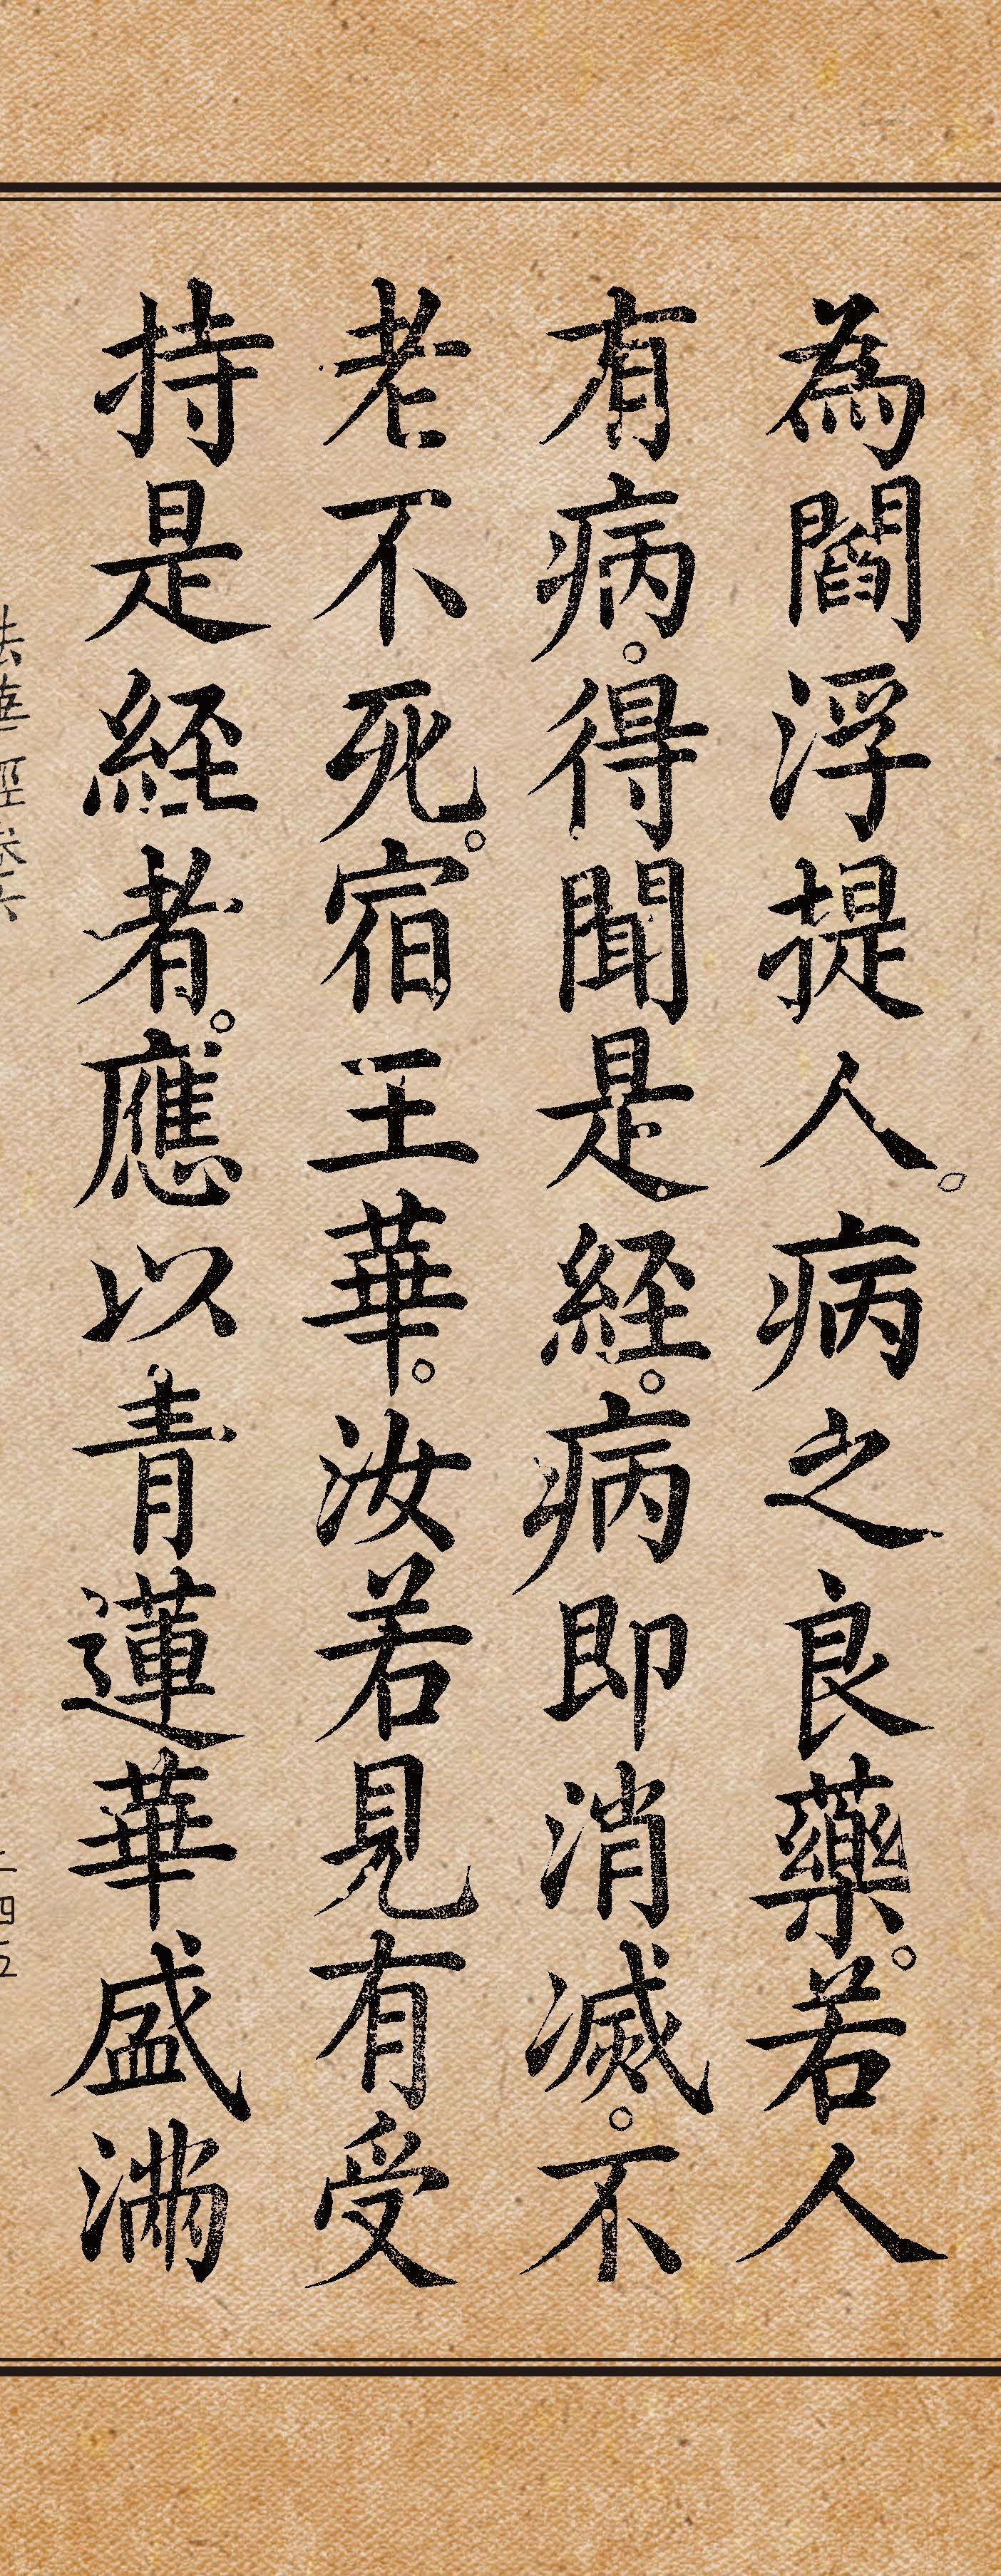 為閻浮提人。病之良藥。若人
有病。得聞是経。病即消滅。不
老不死。宿王華。汝若見有受
持是経者。應以青蓮華盛満
法華經卷六
二四五